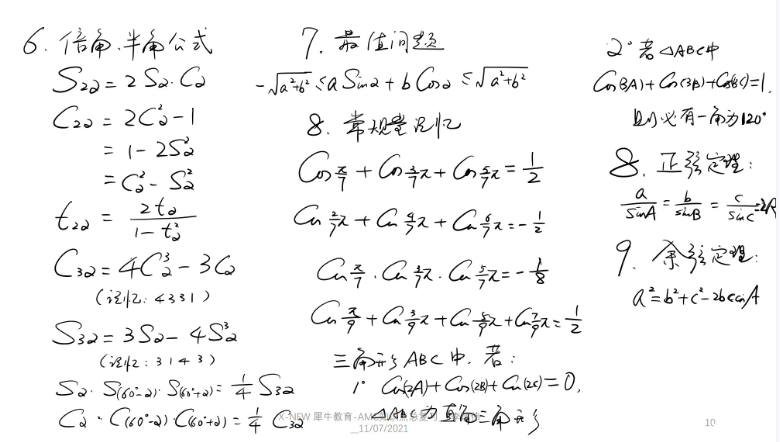 6. 倍角.半角公式
S2α = 2Sα·Cα
C2α = 2C²α - 1
= 1 - 2S²α
= C²α - S²α
t2α = 2tα / (1 - t²α)
C3α = 4C³α - 3Cα
(记忆: 4331)
S3α = 3Sα - 4S³α
(记忆: 3143)
Sα · S(60°-α) · S(60°+α) = 1/4 S3α
Cα · C(60°-α) · C(60°+α) = 1/4 C3α
7. 最值问题
-√(a²+b²) ≤ a Sinα + b Cosα ≤ √(a²+b²)
8. 常规量记忆
Cos π/7 + Cos 3/7 π + Cos 5/7 π = 1/2
Cos 2/7 π + Cos 4/7 π + Cos 6/7 π = -1/2
Cos π/7 · Cos 3/7 π · Cos 5/7 π = -1/8
Cos π/9 + Cos 3/9 π + Cos 5/9 π + Cos 7/9 π = 1/2
三角形ABC中, 若:
1° Cos(2A) + Cos(2B) + Cos(2C) = 0,
△ABC为直角三角形
2° 若△ABC中
Cos(3A) + Cos(3B) + Cos(3C) = 1,
则必有一角为120°
8. 正弦定理:
a/SinA = b/sinB = c/sinC = 2R
9. 余弦定理:
a² = b² + c² - 2bc cosA
X-NEW 犀牛教育-AM
11/07/2021
10